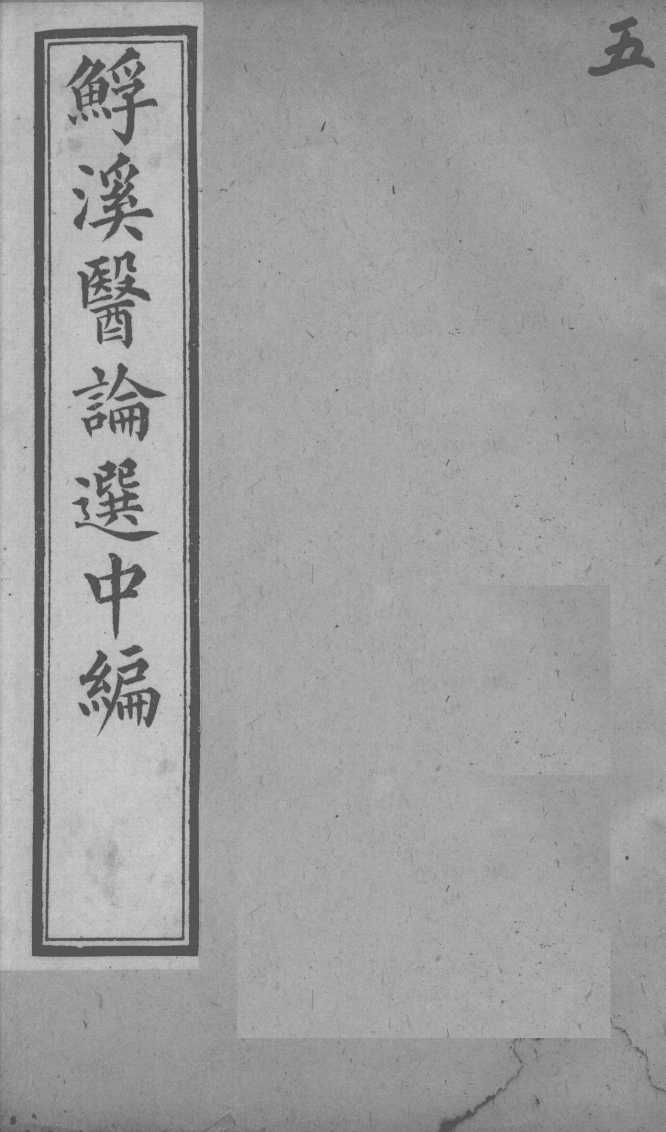 五
鯚溪醫論選中編